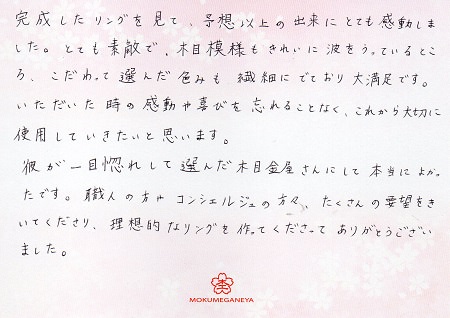 完成したリングを見て、予想以上の出来にとても感動しま
した。とても素敵で、木目模様もきれいに波をうっているとこ
ろ、こだわって選んだ色みも繊細にでており大満足です。
いただいた時の感動や喜びを忘れることなく、これから大切に
使用していきたいと思います。
彼が一目惚れして選んだ木目金屋さんにして本当によかっ
たです。職人の方やコンシェルジュの方々、たくさんの要望をき
いてくださり、理想的なリングを作ってくださってありがとうござい
ました。
MOKUMEGANEYA